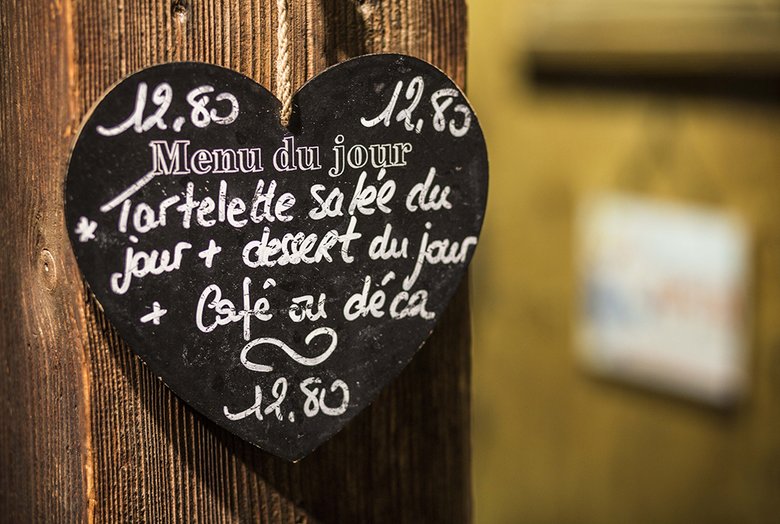 12,80 12,80
Menu du jour
* Tartelette salée du
jour + dessert du jour
+ Café ou déca
12.80